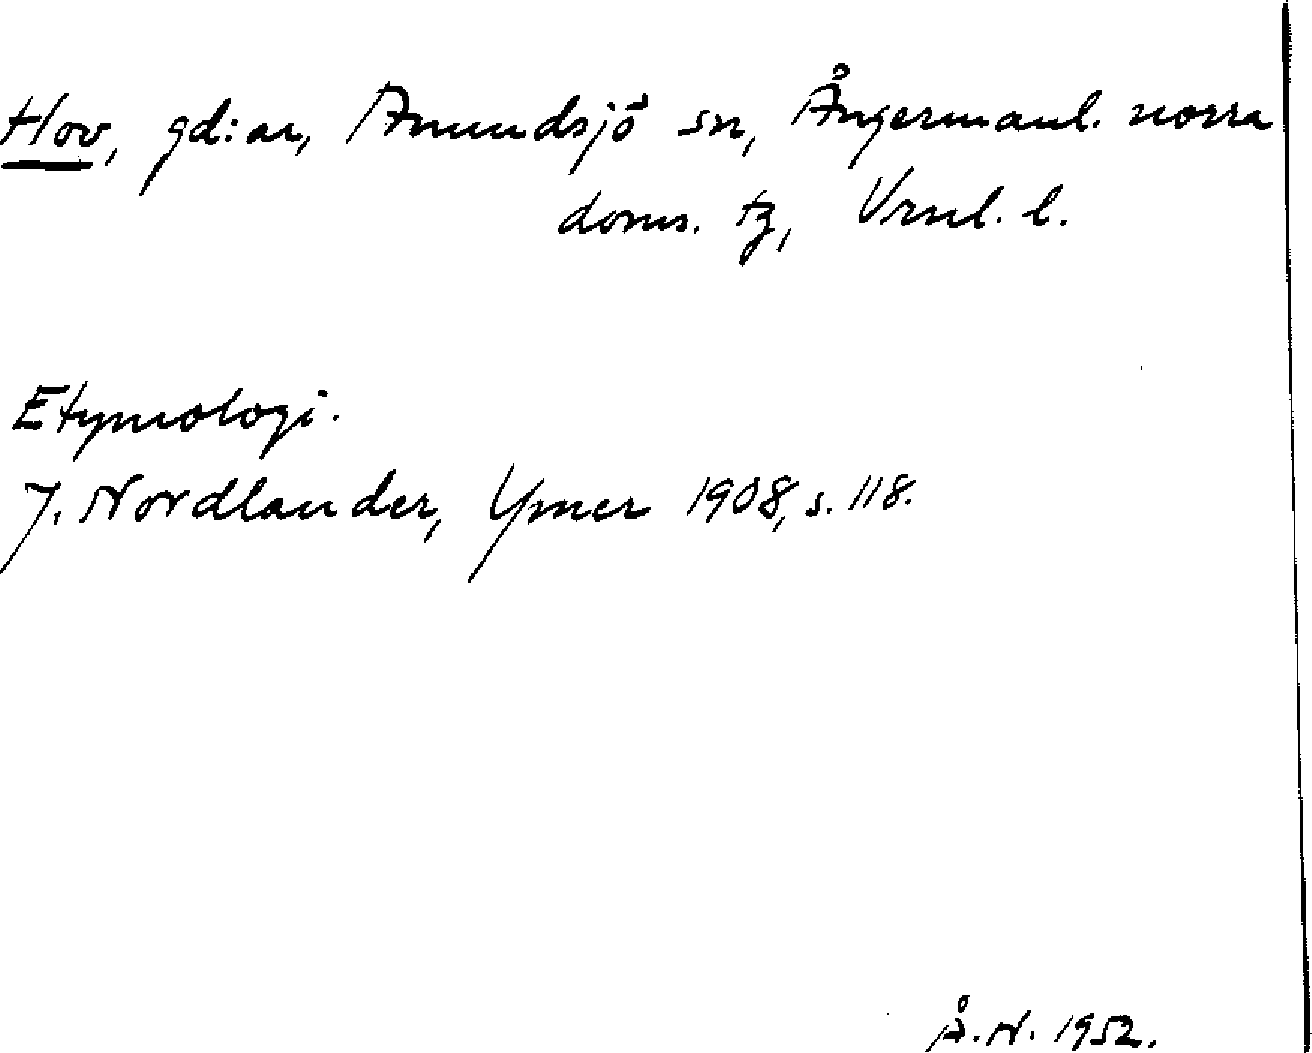 Hov, gd:ar, Anundsjö sn, Ångermanl. norra
doms. tg, Vrnl. l.
Etymologi.
J. Nordlander, Ymer 1908, s. 118.
Å. N. 1952.